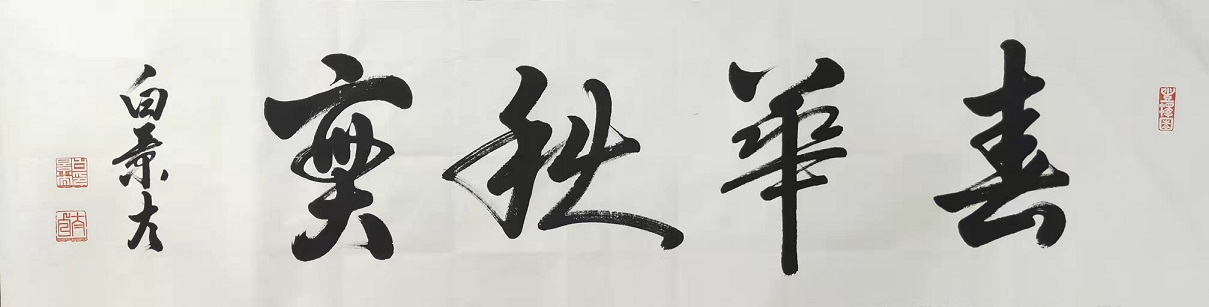 春華秋實
白景